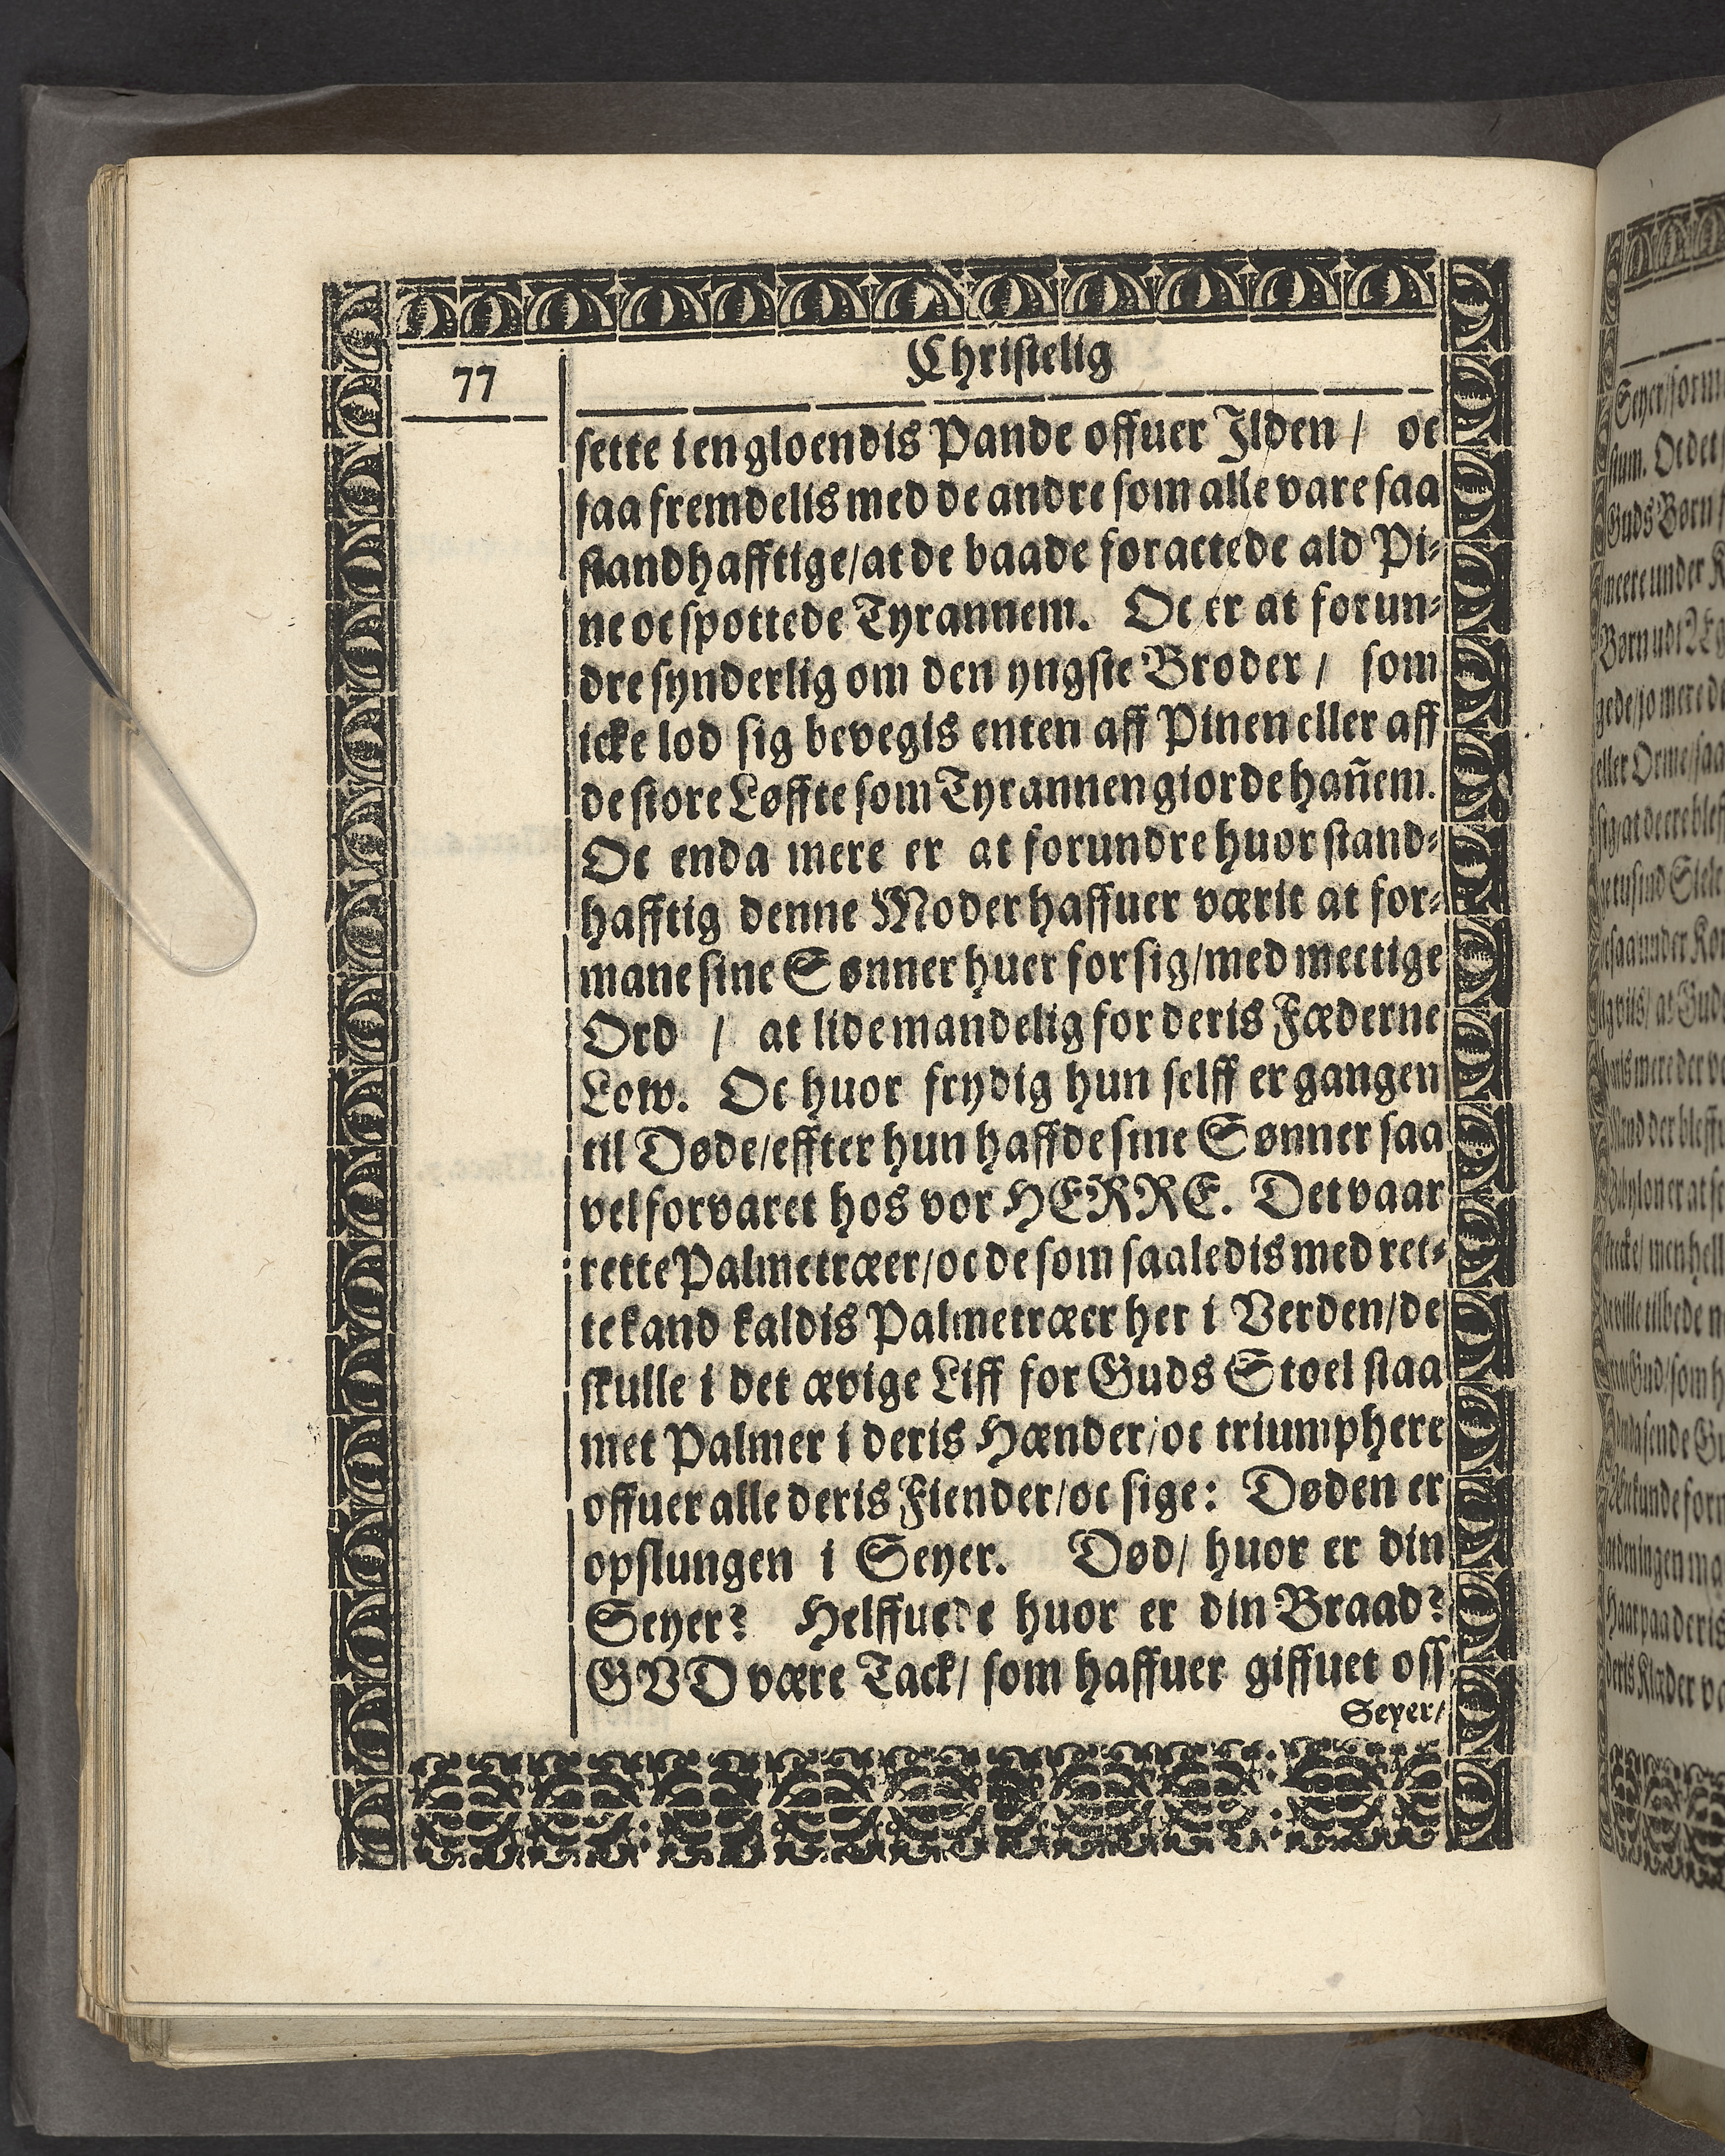 77
Christelig
sette i en gloendis Pande offuer Ilden / oc
saa fremdelis med de andre som alle vare saa
standhafftige/at de baade foractede ald Pi⸗
ne oc spottede Tyrannem. Oc er at forun⸗
dre synderlig om den yngste Broder / som
icke lod sig bevegis enten aff Pinen eller aff
de store Løffte som Tyrannen giorde han̄em.
Oc enda mere er at forundre huor stand⸗
hafftig denne Moder haffuer værit at for⸗
mane sine Sønner huer for sig/med mectige
Ord / at lide mandelig for deris Fæderne
Low. Oc huor frydig hun selff er gangen
til Døde/effter hun haffde sine Sønner saa
vel forvaret hos vor HERRE. Det vaar
rette Palmetræer/oc de som saaledis med ret⸗
te kand kaldis Palmetræer her i Verden/de
skulle i det ævige Liff for Guds Stoel staa
met Palmer i deris Hænder/oc triumphere
offuer alle deris Fiender/oc sige: Døden er
opslungen i Seyer. Død/ huor er din
Seyer? Helffuede huor er din Braad?
GVD være Tack/ som haffuer giffuet oss
Seyer/